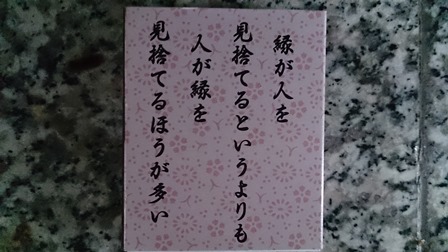 縁が人を
見捨てるというよりも
人が縁を
見捨てるほうが多い